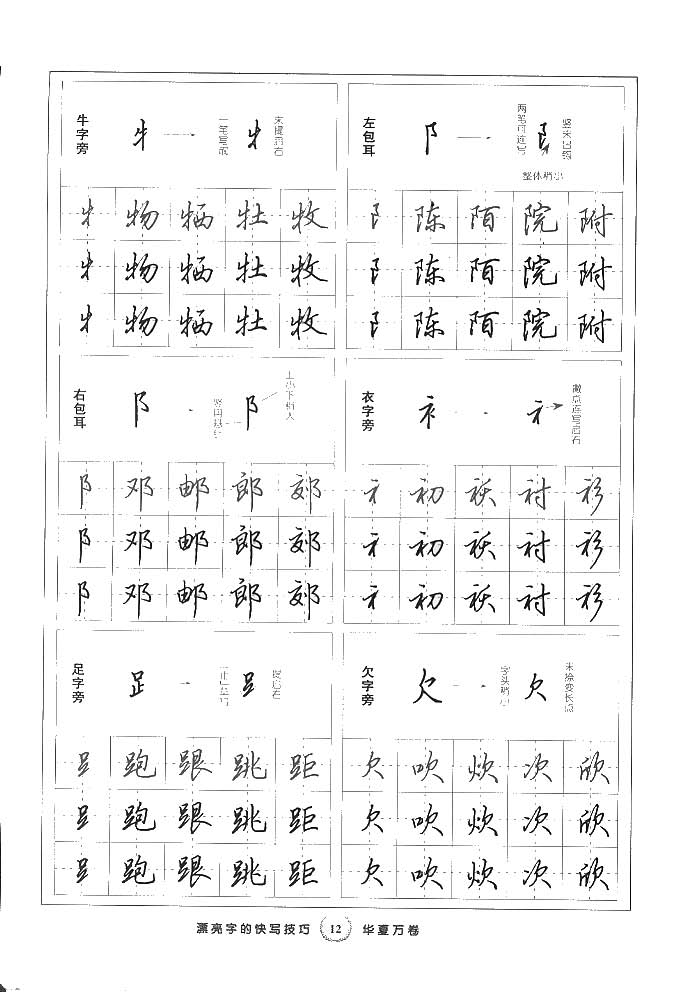 牛字旁
牜
一笔写成
牜
末提启右
牜 物 牺 牡 牧
牜 物 牺 牡 牧
牜 物 牺 牡 牧
左包耳
阝
两笔可连写
阝
竖末出钩
整体稍小
阝 陈 陌 院 附
阝 陈 陌 院 附
阝 陈 陌 院 附
右包耳
阝
阝
上小下稍大
阝 邓 邮 郎 郊
阝 邓 邮 郎 郊
阝 邓 邮 郎 郊
衣字旁
衤
衤
撇点连写启右
衤 初 袄 衬 衫
衤 初 袄 衬 衫
衤 初 袄 衬 衫
足字旁
𧾷
𧾷
提启右
𧾷 跑 跟 跳 距
𧾷 跑 跟 跳 距
𧾷 跑 跟 跳 距
欠字旁
欠
字头稍小
欠
末捺变长点
欠 吹 炊 次 欣
欠 吹 炊 次 欣
欠 吹 炊 次 欣
漂亮字的快写技巧 12 华夏万卷